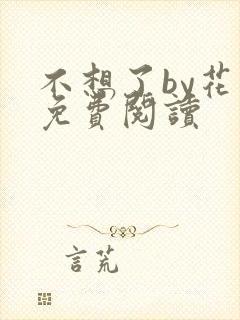 不想了by花
免費閱讀
言荒